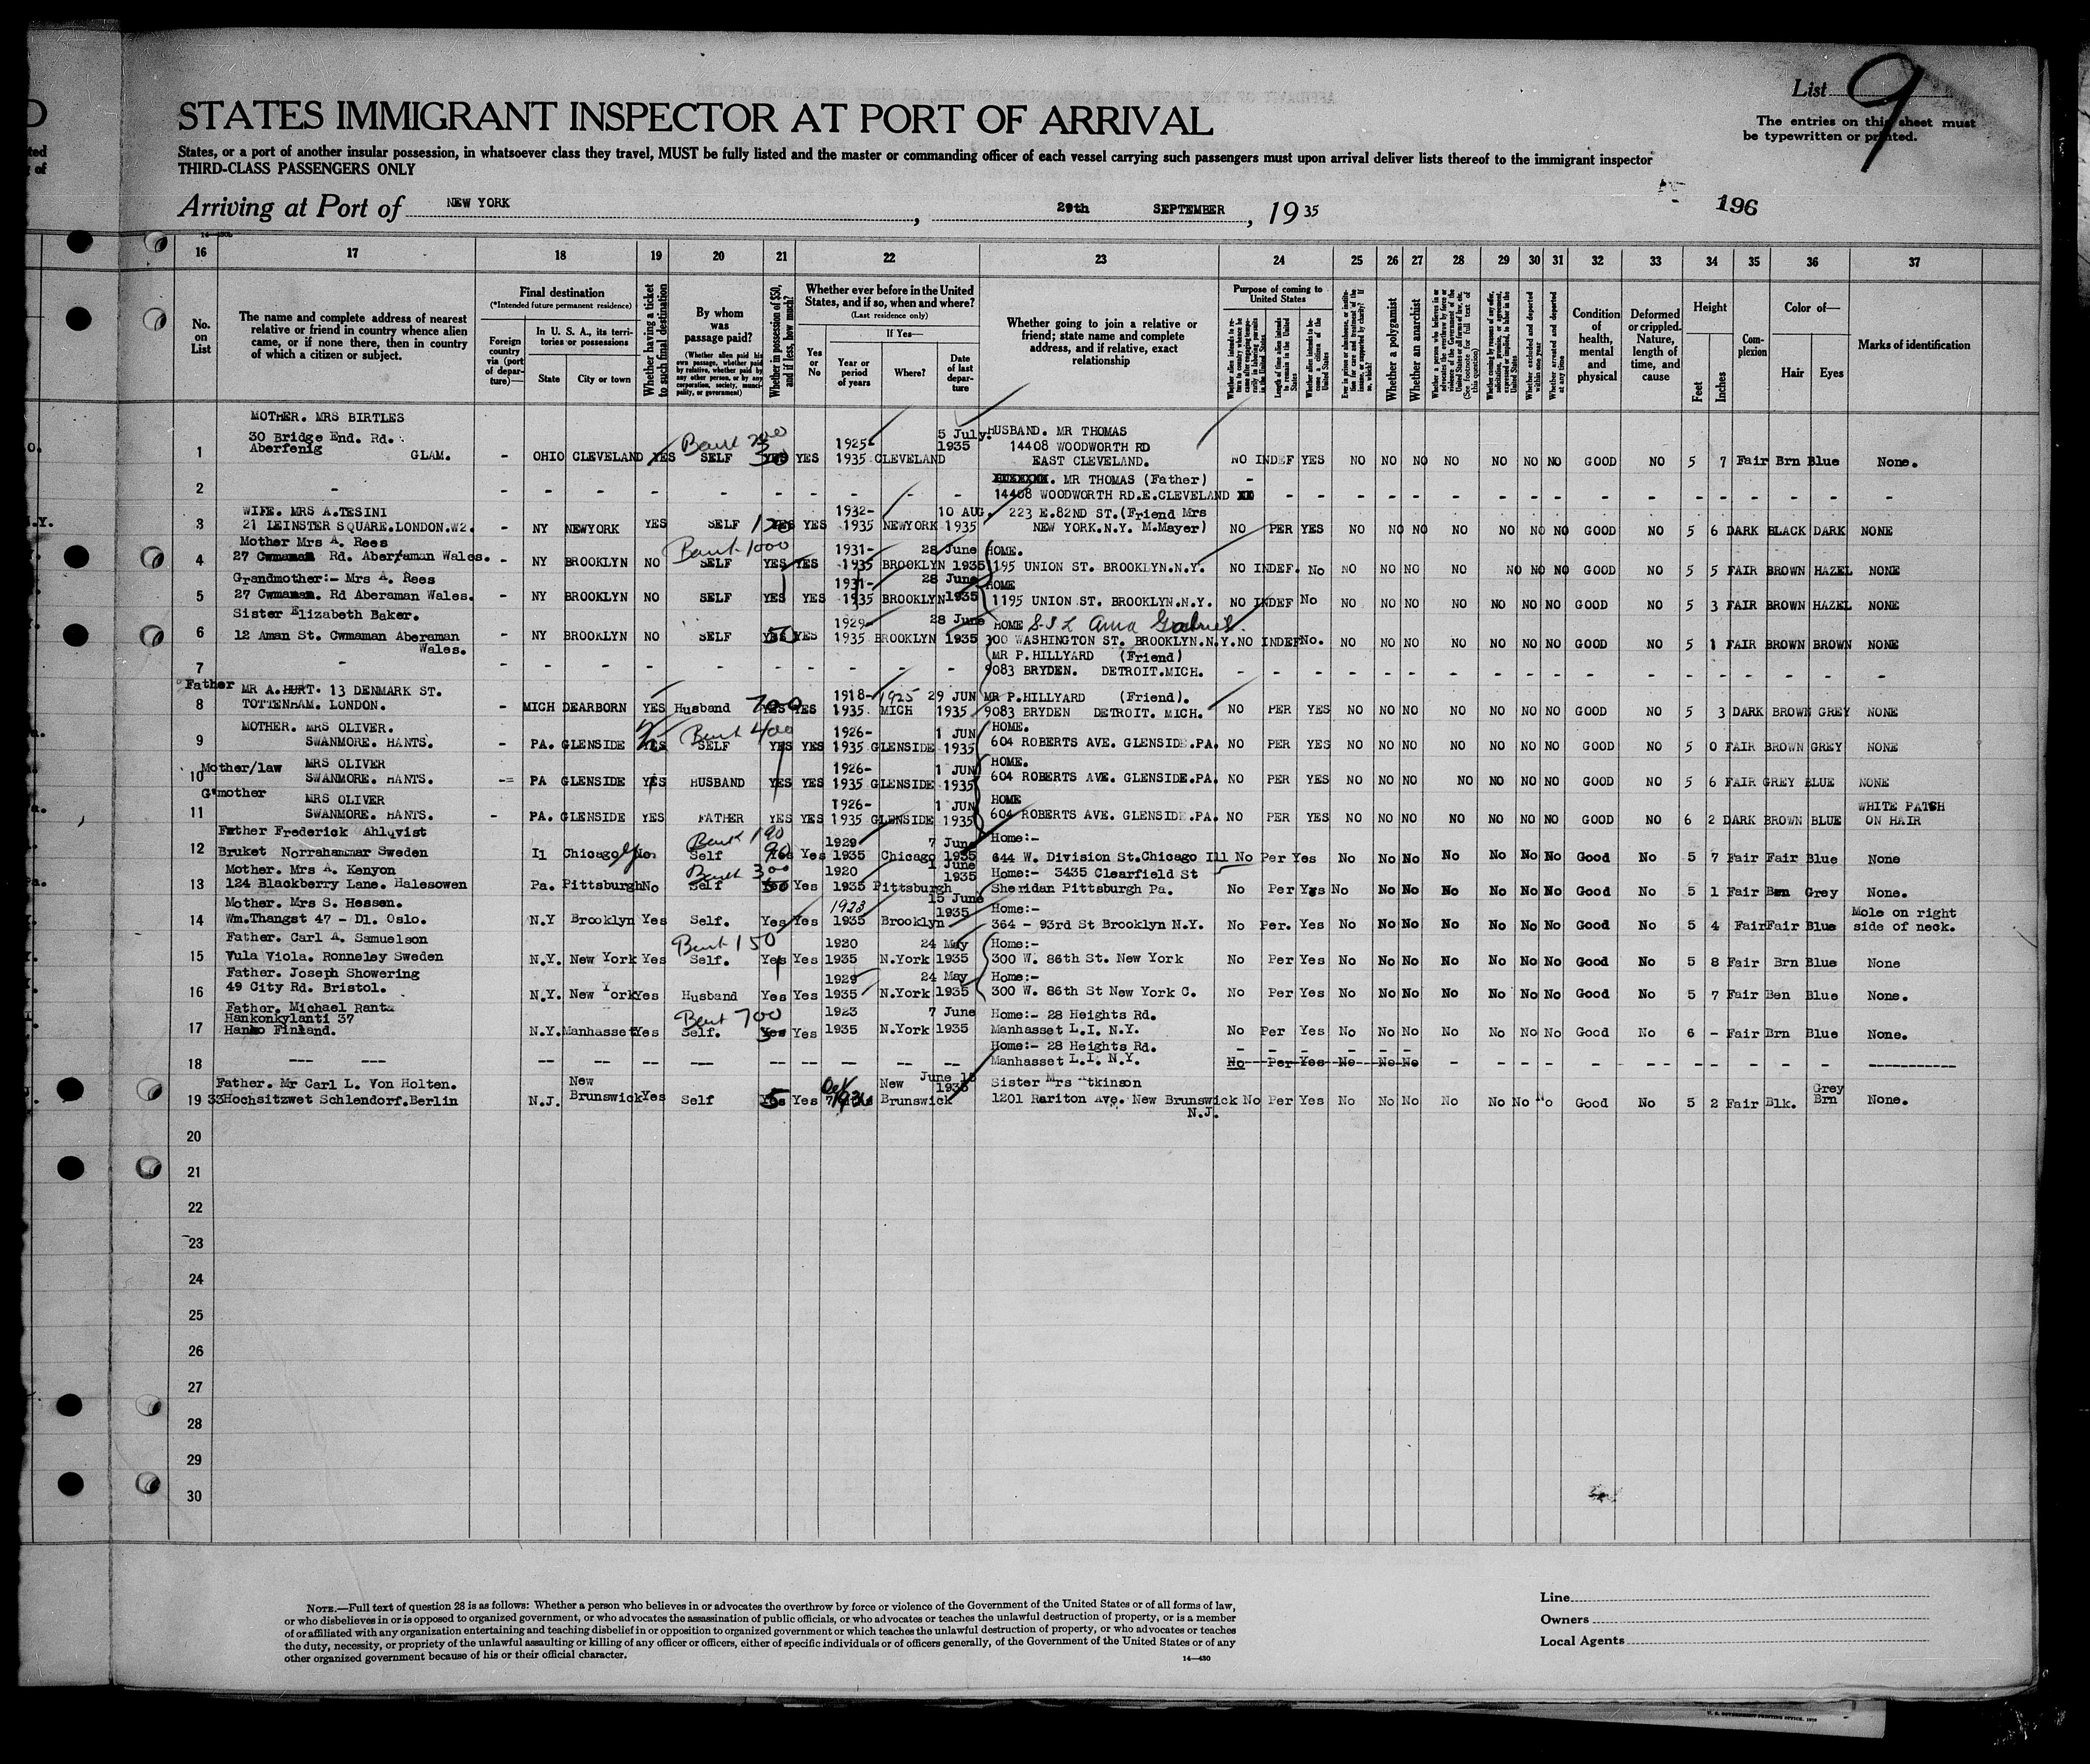 List 9
STATES IMMIGRANT INSPECTOR AT PORT OF ARRIVAL
The entries on this sheet must
be typewritten or printed.
States, or a port of another insular possession, in whatsoever class they travel, MUST be fully listed and the master or commanding officer of each vessel carrying such passengers must upon arrival deliver lists thereof to the immigrant inspector
THIRD-CLASS PASSENGERS ONLY
Arriving at Port of NEW YORK, 29th SEPTEMBER, 19 35
196
16 17 18 19 20 21 22 23 24 25 26 27 28 29 30 31 32 33 34 35 36 37
No. on List
The name and complete address of nearest relative or friend in country whence alien came, or if none there, then in country of which a citizen or subject.
Final destination
(*Intended future permanent residence)
Foreign country via (port of departure)—
In U. S. A., its territories or possessions
State
City or town
Whether having a ticket to such final destination
By whom was passage paid?
(Whether alien paid his own passage, whether paid by relative, whether paid by any other person, or by any corporation, society, municipality, or government)
Whether in possession of $50, and if less, how much?
Whether ever before in the United States, and if so, when and where?
(Last residence only)
Yes or No
If Yes—
Year or period of years
Where?
Date of last departure
Whether going to join a relative or friend; state name and complete address, and if relative, exact relationship
Purpose of coming to United States
Whether alien intends to return to country whence he came after engaging temporarily in laboring pursuits in the United States
Length of time alien intends to remain in the United States
Whether alien intends to become a citizen of the United States
Whether a polygamist
Whether an anarchist
Whether excluded and deported within one year
Whether arrested and deported at any time
Condition of health, mental and physical
Deformed or crippled. Nature, length of time, and cause
Height
Feet
Inches
Complexion
Color of—
Hair
Eyes
Marks of identification
1 MOTHER. MRS BIRTLES 30 Bridge End. Rd. Aberfenig GLAM. - OHIO CLEVELAND YES SELF YES YES 1925- 1935 CLEVELAND 5 July. 1935 HUSBAND. MR THOMAS 14408 WOODWORTH RD EAST CLEVELAND. NO INDEF YES NO NO NO NO NO NO NO GOOD NO 5 7 Fair Brn Blue None.
2 - - - - - - - - - - - MR THOMAS (Father) 14408 WOODWORTH RD.E.CLEVELAND - - - - - - - - - - - - - - - - -
3 WIFE. MRS A.TESINI 21 LEINSTER SQUARE.LONDON.W2. - NY NEWYORK YES SELF 120 YES YES 1932- 1935 NEWYORK 10 AUG. 1935 223 E.82ND ST.(Friend Mrs NEW YORK.N.Y. M.Mayer) NO PER YES NO NO NO NO NO NO NO GOOD NO 5 6 DARK BLACK DARK NONE
4 Mother Mrs A. Rees 27 Cwmaman Rd. Aberaman Wales. - NY BROOKLYN NO SELF 1000 YES YES 1931- 1935 BROOKLYN 28 June 1935 HOME. 1195 UNION ST. BROOKLYN.N.Y. NO INDEF. No NO NO NO NO NO NO NO GOOD NO 5 5 FAIR BROWN HAZEL NONE
5 Grandmother:- Mrs A. Rees 27 Cwmaman. Rd Aberaman Wales. - NY BROOKLYN NO SELF YES YES 1931- 1935 BROOKLYN 28 June 1935 HOME 1195 UNION ST. BROOKLYN.N.Y. NO INDEF No NO NO NO NO NO NO NO GOOD NO 5 3 FAIR BROWN HAZEL NONE
6 Sister Elizabeth Baker. 12 Aman St. Cwmaman Aberaman Wales. - NY BROOKLYN NO SELF YES 50 YES 1929- 1935 BROOKLYN 28 June 1935 HOME S-I-L Anna Gabriel 300 WASHINGTON ST. BROOKLYN.N.Y. NO INDEF No. NO NO NO NO NO NO NO GOOD NO 5 1 FAIR BROWN BROWN NONE
7 - - - - - - - - - - - MR P.HILLYARD (Friend) 9083 BRYDEN. DETROIT.MICH. - - - - - - - - - - - - - - - - -
8 Father MR A.HURT. 13 DENMARK ST. TOTTENHAM. LONDON. - MICH DEARBORN YES Husband 200 YES YES 1918- 1925 1935 MICH 29 JUN 1935 MR P.HILLYARD (Friend). 9083 BRYDEN DETROIT. MICH. NO PER YES NO NO NO NO NO NO NO GOOD NO 5 3 DARK BROWN GREY NONE
9 MOTHER. MRS OLIVER. SWANMORE. HANTS. - PA. GLENSIDE YES SELF 400 YES YES 1926- 1935 GLENSIDE 1 JUN 1935 HOME. 604 ROBERTS AVE. GLENSIDE.PA. NO PER YES NO NO NO NO NO NO NO GOOD NO 5 0 FAIR BROWN GREY NONE
10 Mother/law MRS OLIVER SWANMORE. HANTS. - PA GLENSIDE YES HUSBAND YES YES 1926- 1935 GLENSIDE 1 JUN 1935 HOME. 604 ROBERTS AVE. GLENSIDE.PA. NO PER YES NO NO NO NO NO NO NO GOOD NO 5 6 FAIR GREY BLUE NONE
11 G'mother MRS OLIVER SWANMORE. HANTS. - PA. GLENSIDE YES FATHER YES YES 1926- 1935 GLENSIDE 1 JUN 1935 HOME 604 ROBERTS AVE. GLENSIDE.PA. NO PER YES NO NO NO NO NO NO NO GOOD NO 6 2 DARK BROWN BLUE WHITE PATCH ON HAIR
12 Father Frederick Ahlqvist Bruket Norrahammar Sweden Il Chicago Self 190 Yes Yes 1929 1935 Chicago 7 June 1935 Home:- 644 W. Division St.Chicago Ill No Per Yes No No No No No No No Good No 5 7 Fair Fair Blue None
13 Mother. Mrs A. Kenyon 124 Blackberry Lane. Halesowen Pa. Pittsburgh No Self 300 Yes 1920 1935 Pittsburgh 1 June 1935 Home:- 3435 Clearfield St Sheridan Pittsburgh Pa. No Per Yes No No No No No No No Good No 5 1 Fair Brn Grey None.
14 Mother. Mrs S. Hessen. Wm.Thangst 47 - D1. Oslo. N.Y Brooklyn Yes Self. Yes Yes 1923 1935 Brooklyn 15 June 1935 Home:- 364 - 93rd St Brooklyn N.Y. No Per. Yes No No No No No No No Good No 5 4 Fair Fair Blue Mole on right side of neck.
15 Father. Carl A. Samuelson Vula Viola. Ronneley Sweden N.Y. New York Yes Self. 150 Yes Yes 1920 1935 N.York 24 May 1935 Home:- 300 W. 86th St. New York No Per Yes No No No No No No No Good No 5 8 Fair Brn Blue None
16 Father. Joseph Showering 49 City Rd. Bristol. N.Y. New York Yes Husband Yes Yes 1929 1935 N.York 24 May 1935 Home:- 300 W. 86th St New York C. No Per Yes No No No No No No No Good No 5 7 Fair Ben Blue None.
17 Father. Michael Ranta Hankonkylanti 37 Hanko Finland. N.Y. Manhasset Yes Self. 700 Yes Yes 1923 1935 N.York 7 June 1935 Home:- 28 Heights Rd. Manhasset L.I. N.Y. No Per Yes No No No No No No No Good No 6 - Fair Brn Blue None.
18 --- --- -- -- -- -- -- -- -- -- -- Home:- 28 Heights Rd. Manhasset L.I. N.Y. No Per Yes No No No - - - - - - - - - - - -----------
19 Father. Mr Carl L. Von Holten. 33 Hochsitzwet Schlendorf.Berlin N.J. New Brunswick Yes Self 5 Yes New Brunswick June 15 1935 Sister Mrs Atkinson 1201 Rariton Ave. New Brunswick N.J. No Per Yes No No No No No No No Good No 5 2 Fair Blk. Grey Brn None.
20
21
22
23
24
25
26
27
28
29
30
NOTE.—Full text of question 28 is as follows: Whether a person who believes in or advocates the overthrow by force or violence of the Government of the United States or of all forms of law,
or who disbelieves in or is opposed to organized government, or who advocates the assassination of public officials, or who advocates or teaches the unlawful destruction of property, or is a member
of or affiliated with any organization entertaining and teaching disbelief in or opposition to organized government or which teaches the unlawful destruction of property, or who advocates or teaches
the duty, necessity, or propriety of the unlawful assaulting or killing of any officer or officers, either of specific individuals or of officers generally, of the Government of the United States or of any
other organized government because of his or their official character.
14—430
Line
Owners
Local Agents